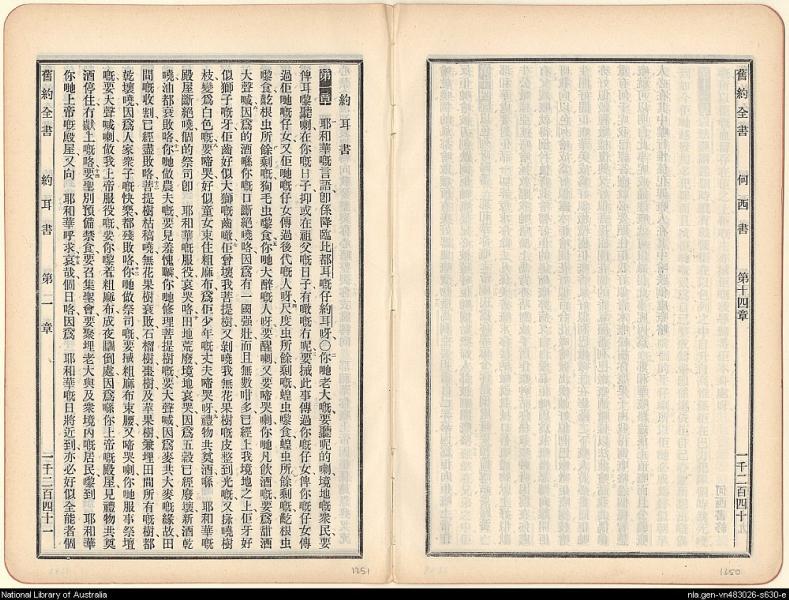 舊約全書 何西書 第十四章 一千二百四十
約耳書
第一章 耶和華嘅言語卽係降臨比都耳嘅仔約耳呀○你哋老大嘅要聽呢的喇境地嘅衆民要
俾耳嚟聽喇在你嘅日子抑或在祖父嘅日子有噉嘅有呢要搣此事傳過你嘅仔女俾你嘅仔女傳
過佢哋嘅仔女又佢哋嘅仔女傳過後代嘅人呀尺度虫所餘剩嘅蝗虫嚟食蝗虫所餘剩嘅龁根虫
嚟食龁根虫所餘剩嘅狗毛虫嚟食你哋大醉嘅人呀要醒喇又要啼哭喇你哋凡飲酒嘅要爲甜酒
大聲喊因爲的酒喺你嘅口斷絕嘵咯因爲有一國强壯而且無數咁多已經上我境地之上佢牙好
似獅子嘅牙佢齒好似大獅嘅齒佢曾壞我菩提樹又剝嘵我無花果樹嘅皮整到光嘅又揼嘵樹
枝變爲白色嘅要啼哭好似童女束住粗麻布爲佢少年嘅丈夫啼哭呀禮物共奠酒喺 耶和華嘅
殿屋斷絕嘵個的祭司卽 耶和華嘅服役哀哭咯田地荒廢境地哀哭因爲五穀已經廢壞新酒乾
嘵油都衰敗咯你哋做農夫嘅要見羞愧你哋修理菩提樹嘅要大聲喊因爲麥共大麥嘅緣故田
間嘅收割已經盡敗咯菩提樹枯稿嘵無花果樹衰敗石榴樹棗樹及苹果樹兼埋田間所有嘅樹都
乾壞嘵因爲人家衆子嘅快樂都殘敗咯你哋做祭司嘅要搣粗麻布束腰又啼哭喇你哋服事祭壇
嘅要大聲喊喇做我上帝服役嘅要你嚟着粗麻布成夜瞓倒處因爲喺你上帝嘅殿屋見禮物共奠
酒停住冇獻上嘅咯要聖別預備禁食要召集聖會要聚埋老大與及衆境內嘅居民嚟到 耶和華
你哋上帝嘅殿屋又向 耶和華呼求哀哉個日咯因爲 耶和華嘅日將近到亦必好似全能者個
舊約全書 約耳書 第一章 一千二百四十一
1251
1250
National Library of Australia
nla.gen-vn483026-s630-e